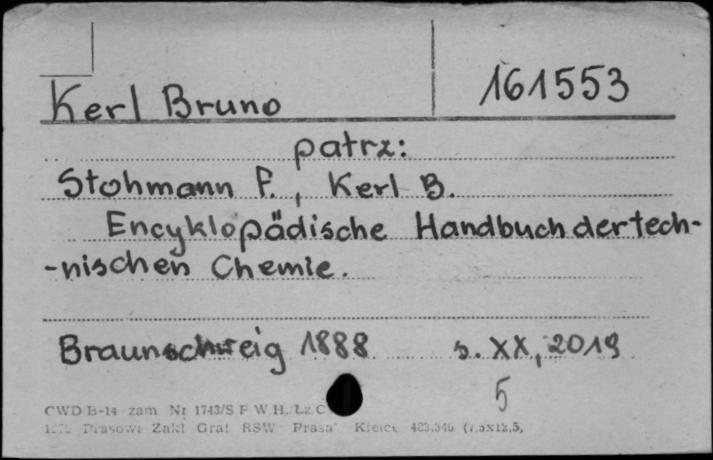 Kerl Bruno 161553
patrz:
Stohmann F., Kerl B.
Encyklopädische Handbuch der tech-
-nischen Chemie.
Braunschweig 1888 s. XX, 2019
5
CWD B-14 zam Nr 1743/S F W H. Łz. C
Prasowe Zakł Graf RSW Prasa Kielce